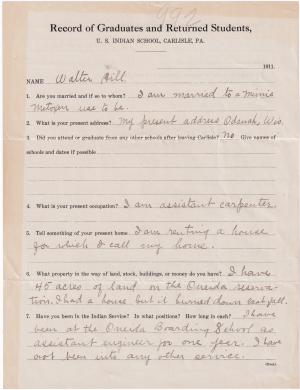 992
Record of Graduates and Returned Students,
U. S. INDIAN SCHOOL, CARLISLE, PA.
1911.
NAME Walter Hill
1. Are you married and if so to whom? I am married to a Minnie
Metoxen use to be.
2. What is your present address? My present address Odanah, Wis.
3. Did you attend or graduate from any other schools after leaving Carlisle? No Give names of
schools and dates if possible
4. What is your present occupation? I am assistant carpenter.
5. Tell something of your present home. I am renting a house
for which I call my home.
6. What property in the way of land, stock, buildings, or money do you have? I have
45 acres of land on the Oneida reserva-
tion. I had a house but it burned down last fall.
7. Have you been in the Indian Service? In what positions? How long in each? I have
been at the Oneida Boarding School as
assistant engineer for one year. I have
not been into any other service.
(Over.)